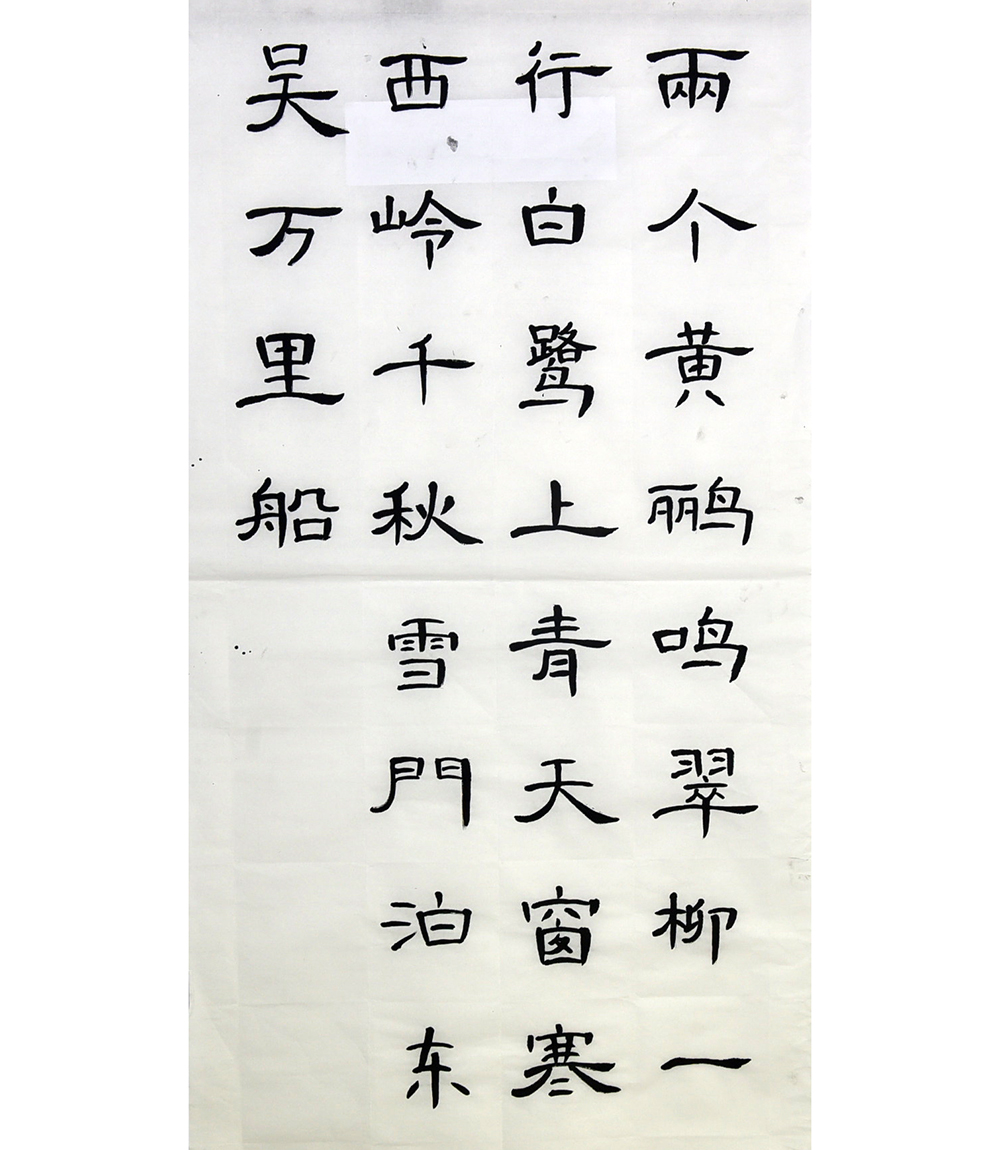 兩个黄鹂鸣翠柳一
行白鹭上青天窗寒
西岭千秋雪門泊东
吴万里船